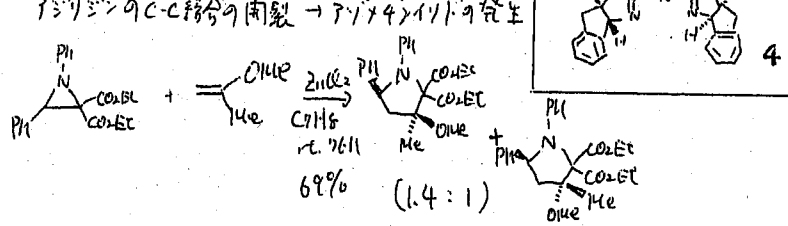 アジリジンのC-C結合の開裂 → アゾメチンイリドの発生
H N N H
4
Ph
N
CO2Et
CO2Et
Ph
+
OMe
Me
ZnCl2
C7H8
rt. 76h
69%
Ph
Ph
N
CO2Et
CO2Et
OMe
Me
(1.4 : 1)
+
Ph
Ph
N
CO2Et
CO2Et
Me
OMe